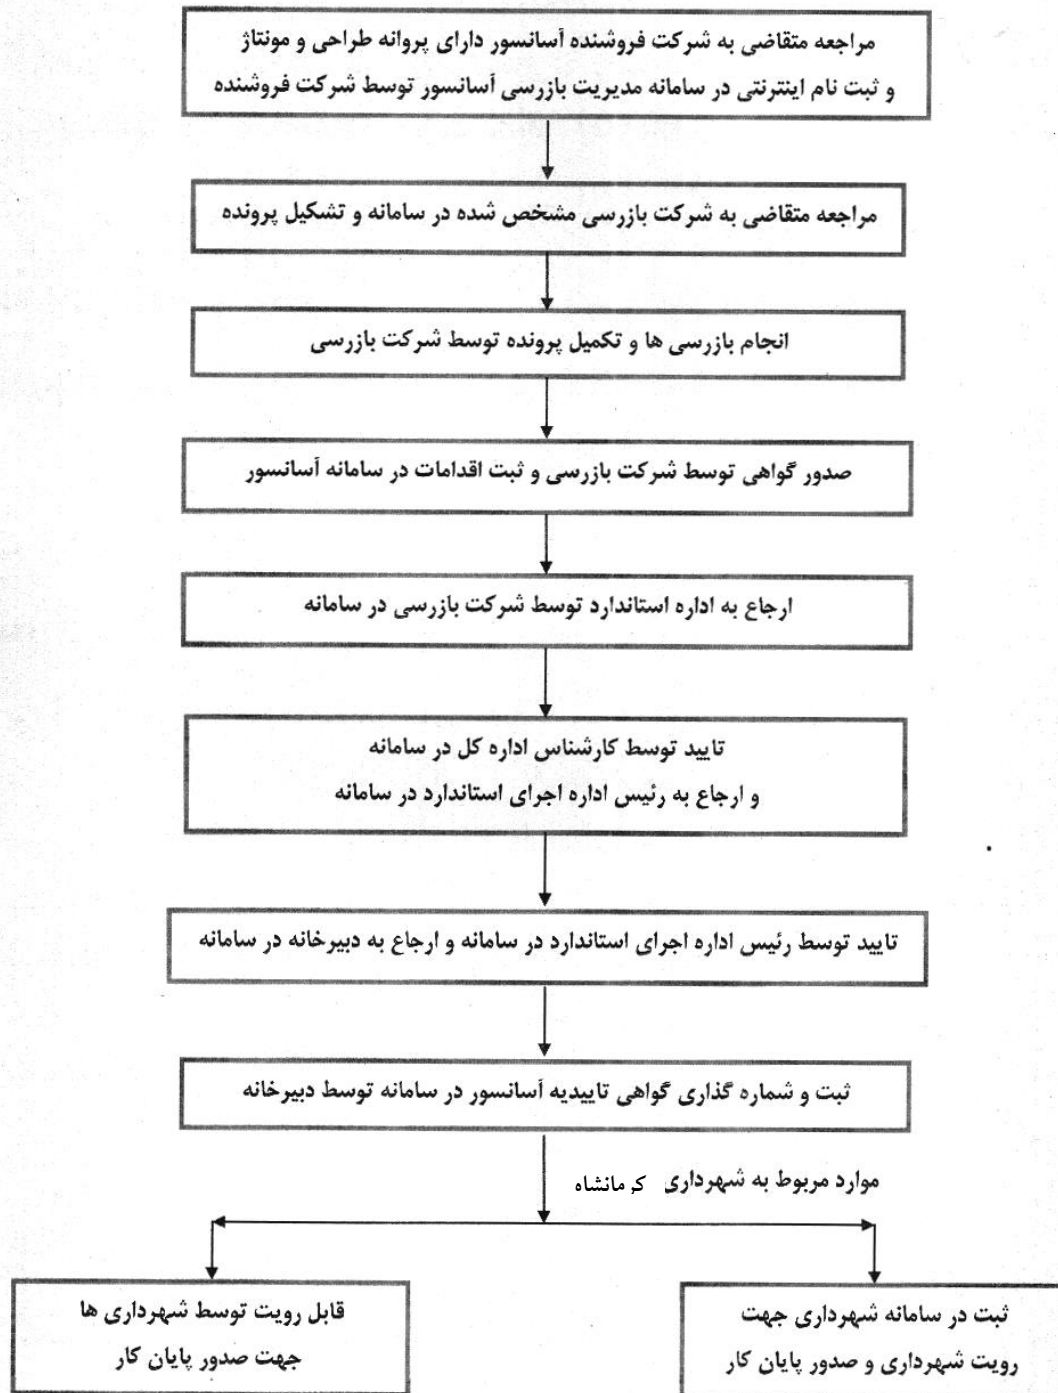 مراجعه متقاضی به شرکت فروشنده آسانسور دارای پروانه طراحی و مونتاژ
و ثبت نام اینترنتی در سامانه مدیریت بازرسی آسانسور توسط شرکت فروشنده
مراجعه متقاضی به شرکت بازرسی مشخص شده در سامانه و تشکیل پرونده
انجام بازرسی ها و تکمیل پرونده توسط شرکت بازرسی
صدور گواهی توسط شرکت بازرسی و ثبت اقدامات در سامانه آسانسور
ارجاع به اداره استاندارد توسط شرکت بازرسی در سامانه
تایید توسط کارشناس اداره کل در سامانه
و ارجاع به رئیس اداره اجرای استاندارد در سامانه
تایید توسط رئیس اداره اجرای استاندارد در سامانه و ارجاع به دبیرخانه در سامانه
ثبت و شماره گذاری گواهی تاییدیه آسانسور در سامانه توسط دبیرخانه
موارد مربوط به شهرداری کرمانشاه
ثبت در سامانه شهرداری جهت
رویت شهرداری و صدور پایان کار
قابل رویت توسط شهرداری ها
جهت صدور پایان کار